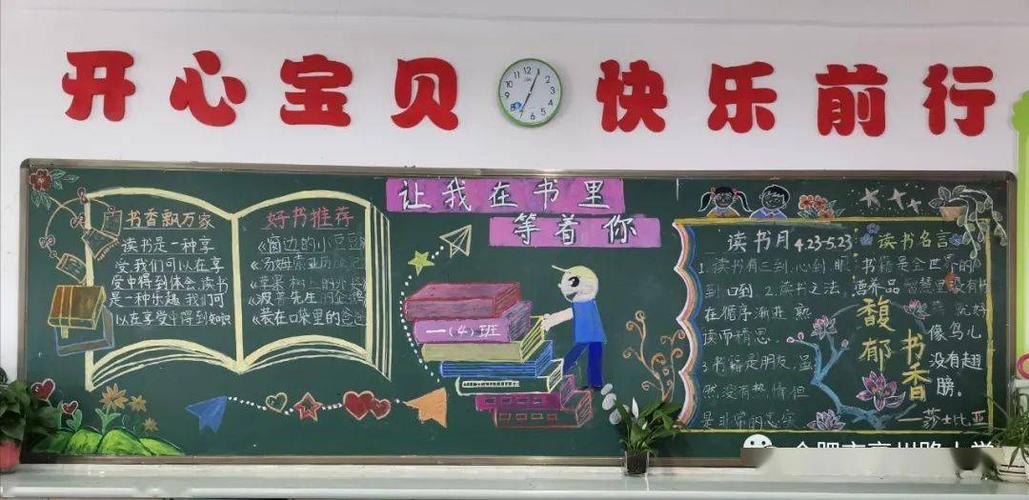 开心宝贝 快乐前行
让我在书里
等着你
书香飘万家
读书是一种享
受,我们可以在享
受中得到体会,读书
是一种乐趣,我们可
以在享受中得到知识
好书推荐
《窗边的小豆豆
《汤姆索亚历险记
《苹果树上的外婆
《装在口袋里的爸爸
一(4)班
读书月 4.23-5.23
1.读书有三到,心到,眼
到口到 2.读书之法,
在循序渐进,熟
读而精思.
3.书籍是朋友,虽
然没有热情但
是非常的忠实
读书名言
书籍是全世界的
营养品 智慧里没有书
就好
像鸟儿
没有翅
膀.
—莎士比亚
馥郁书香
合肥市亳州路小学